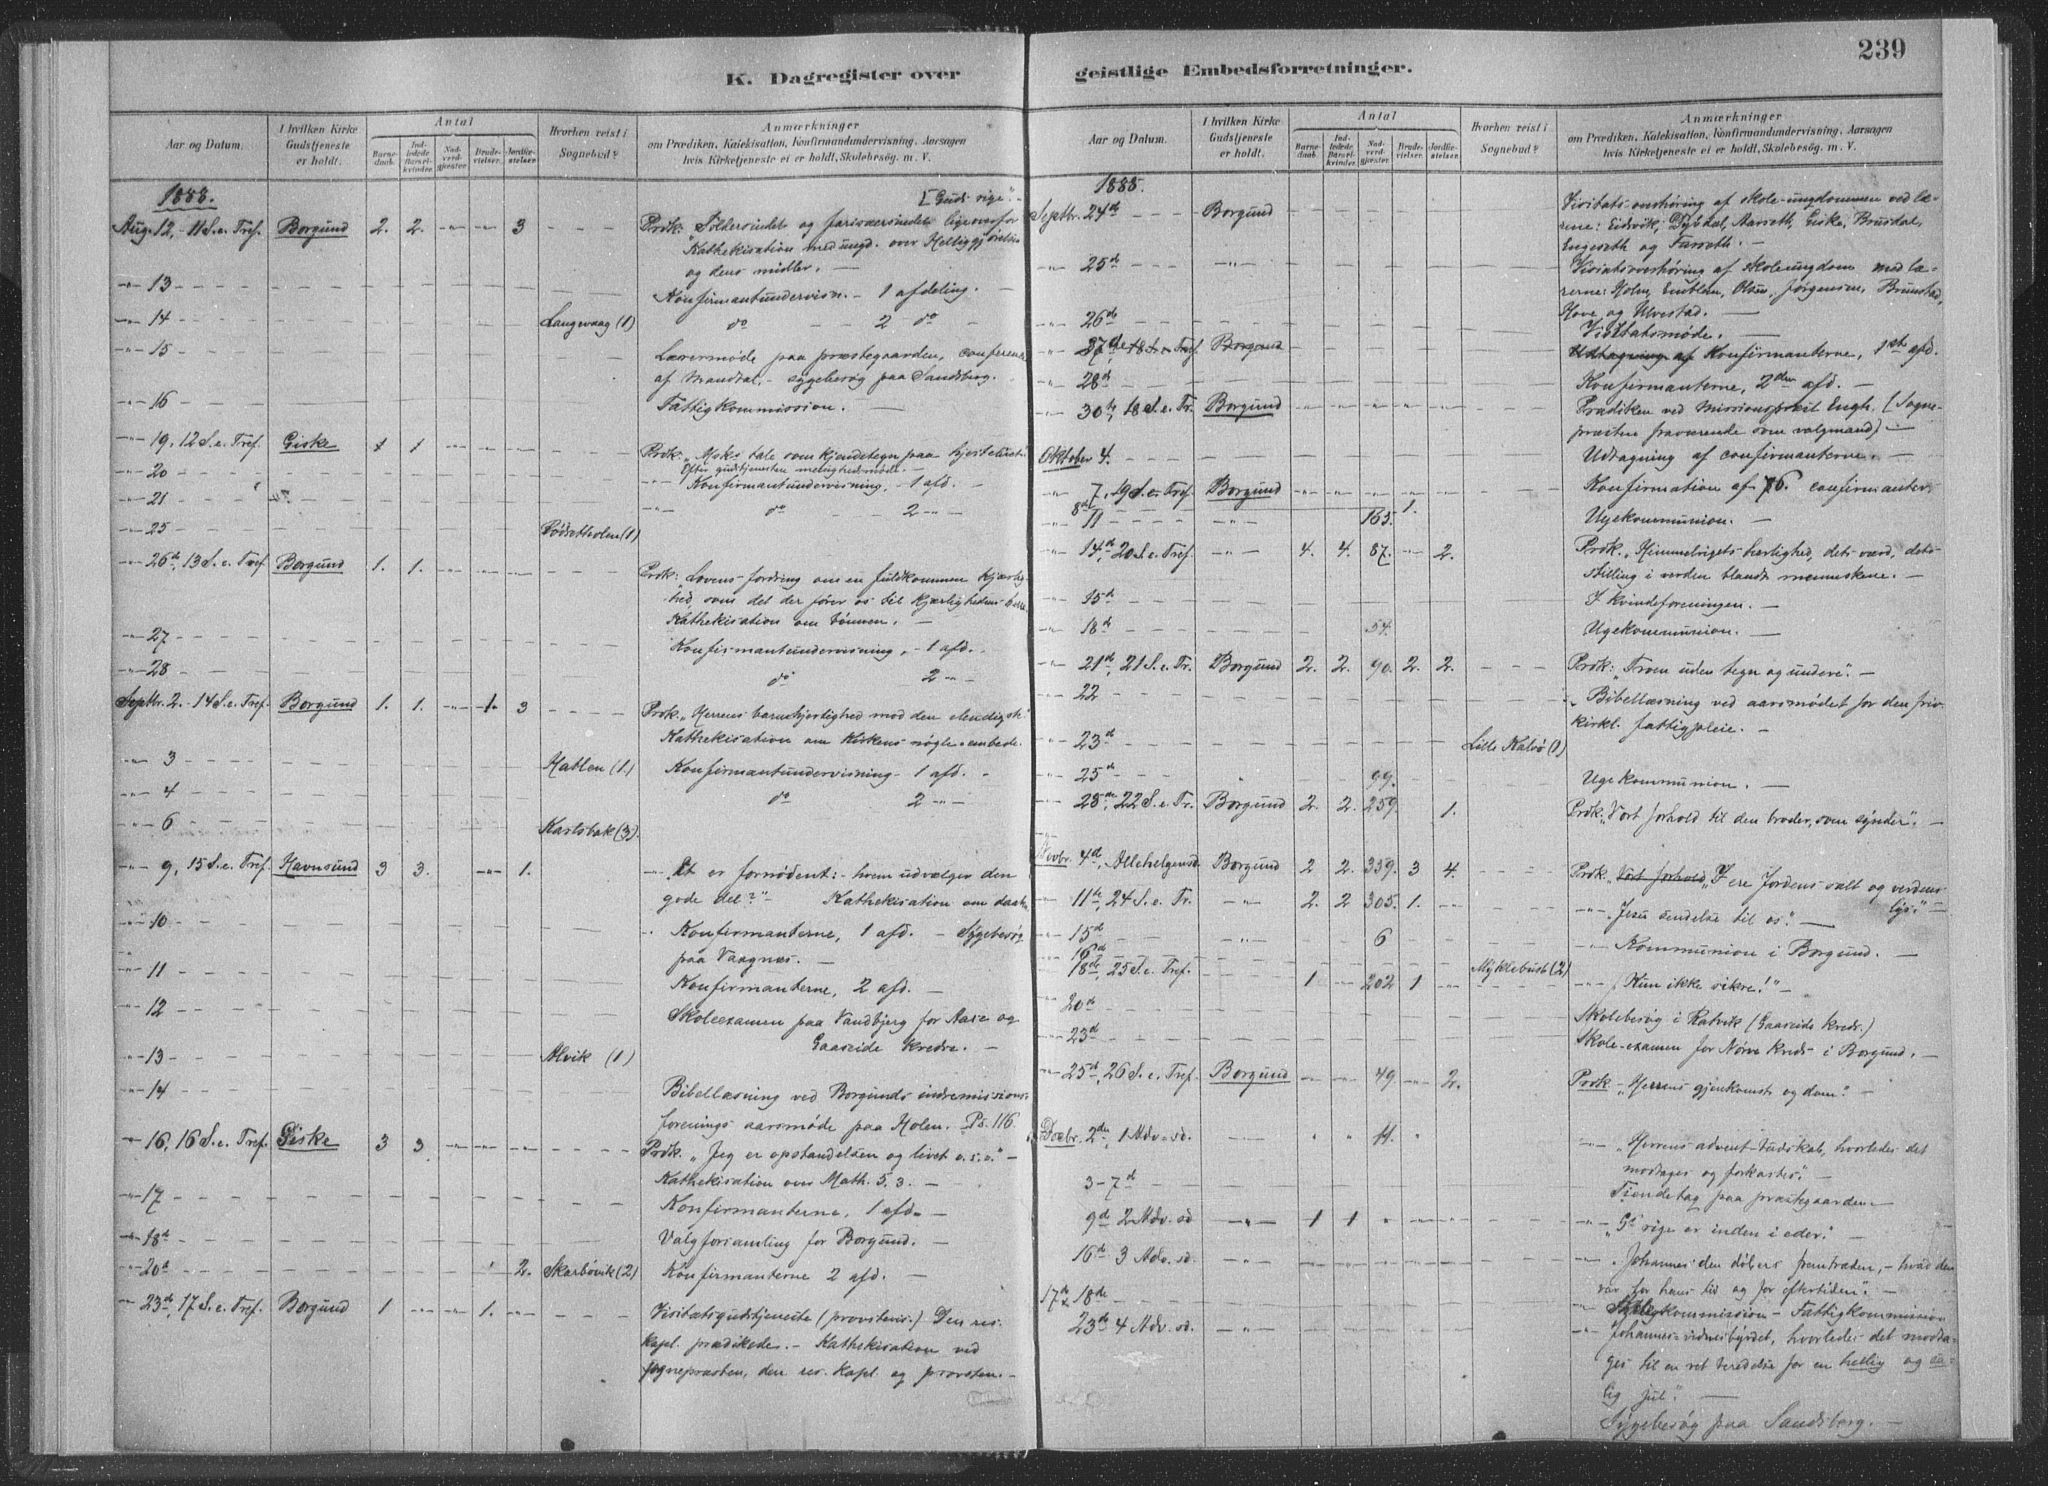 239
K. Dagregister over
geistlige Embedsforretninger.
Aar og Datum.
I hvilken Kirke Gudstjeneste er holdt.
Antal
Barnedaab.
Indledede Barselkvinder.
Nadverdgjester.
Brudevielser.
Jordfæstelser.
Hvorhen reist i Sognebud?
Anmærkninger
om Prædiken, Katekisation, Konfirmandundervisning, Aarsagen
hvis Kirketjeneste ei er holdt, Skolebesøg. m. V.
1888. [Guds rige".
Aug. 12, 11 S. e. Tref. Borgund 2. 2. -"- -"- 3 Prdk: "Toldersindet og farisæersindet ligeoverfor
Kathekisation med ungd. over Helliggjørelsen
og dens midler. —
-"- 13 Konfirmantundervisn. - 1 afdeling. —
-"- 14 Langevaag (1) do - 2 do -
-"- 15 Lærermøde paa præstegaarden, conferense
af Mandtal, - sygebesøg paa Sandsberg.
-"- 16 Fattigkommission. —
-"- 19, 12 S. e. Tref. Giske 1 1 -"- -"- -"- Prdk: "Mskts tale som kjendetegn paa hjertelivet".
Efter gudstjenesten menighedsmøde. -
-"- 20 -"- Konfirmantundervisning, - 1 afd. -
-"- 21 -"- do 2 -"-
-"- 25 Pødsetholen (1)
-"- 26de, 13 S. e. Tref. Borgund 1. 1. -"- -"- -"- Prdk: "Lovens fordring om en fuldkommen kjærlighed, som det der fører os til kjærlighedens
Kathekisation om bønnen. -
-"- 27 Konfirmantundervisning, - 1 afd.
-"- 28 do 2 -"-
Septbr. 2. - 14 S. e. Tref. Borgund 1. 1. -"- 1. 3 Prdk: "Herrens barmhjertighed mod den elendigste"
Kathekisation om kirkens nøgle-embede.
-"- 3 Hatlen (1.) Konfirmantundervisning - 1 afd. -
-"- 4 do 2 -"-
-"- 6 Karlsbak (3).
-"- 9, 15 S. e. Tref. Havnsund 3 3. -"- 1. -"- "Et er fornødent: - hvem udvælger den
gode del?" - Kathekisation om daab
-"- 10 Konfirmanterne, 1 afd. - Sygebesøg
paa Vaagnes. -
-"- 11 Konfirmanterne, 2 afd. -
-"- 12 Skoleexamen paa Vandbjerg for Aase og
Gaaseide kredse. -
-"- 13 Alvik (1)
-"- 14 Bibellæsning ved Borgunds indremissions-
forenings aarsmøde paa Holen. Ps. 116.
-"- 16, 16 S. e. Tref. Giske 3 3. -"- -"- -"- Prdk. "Jeg er opstandelsen og livet o. s. v." -
Kathekisation over Math. 5. 3. -
-"- 17 Konfirmanterne, 1 afd. -
-"- 18de Valgforsamling for Borgund. -
-"- 20de 2. Skarbøvik (2) Konfirmanterne 2 afd. -
-"- 23de, 17 S. e. Tref. Borgund 1 -"- -"- 1. -"- Visitatsgudstjeneste (provstevis.) Den res.
kapl. prædikede. - Kathekisation ved
sognepræsten, den res. kapl og provsten. -
Aar og Datum.
I hvilken Kirke Gudstjeneste er holdt.
Antal
Barnedaab.
Indledede Barselkvinder.
Nadverdgjester.
Brudevielser.
Jordfæstelser.
Hvorhen reist i Sognebud?
Anmærkninger
om Prædiken, Katekisation, Konfirmandundervisning, Aarsagen
hvis Kirketjeneste ei er holdt, Skolebesøg. m. V.
1888.
Septbr. 24de Borgund Visitatsoverhøring af skole-ungdommen ved læ-
rerne: Eidsvik, Dybdal, Aarseth, Giske, Brusdal,
Engeseth og Farseth. -
-"- 25de -"- Visitatsoverhøring af skoleungdom med læ-
rerne: Holm, Emblem, Olsen, Jørgensen, Brunstad,
Hove og Ulvestad. -
-"- 26de Visitatsmøde. -
-"- 27de, 18 S. e. Tref. Borgund Udtagning af Konfirmanterne, 1ste afd.
-"- 28de Konfirmanterne, 2den afd. -
-"- 30te, 18 S. e. Tr. Borgund Prædiken ved Missionsprest Engh. (Sogne-
præsten fraværende som valgmand) -
Oktober 4. Udtagning af confirmanterne. -
-"- 7, 19 S. e. Tref. Borgund 1. Konfirmation af 76. confirmanter.
8de
-"- 11 -"- 165. Ugekommunion. -
-"- 14de, 20 S. e. Tref. -"- 4. 4. 87. -"- 2. Prdk: "Himmelrigets herlighed, dets værd, dets
stilling i verden blandt menneskene. -
-"- 15de I kvindeforeningen. -
-"- 18de 54. Ugekommunion. -
-"- 21de, 21 S. e. Tr. Borgund 2. 2. 90. 2. 2. Prdk: "Troen uden tegn og undere". -
-"- 22 Bibellæsning ved aarsmødet for den friv.
kirkl. fattigpleie. -
-"- 23de Lille Kalvø (1)
-"- 25de 99. Ugekommunion. -
-"- 28de, 22 S. e. Tr. Borgund 2. 2. 259. 1. Prdk. "Vort forhold til den broder, som synder". -
Novbr. 4de, Allehelgensd. Borgund 2 2. 339. 3 4. Prdk. "Vort forhold "I ere Jordens salt og verdens
lys". -
-"- 11te, 24 S. e. Tr. -"- 2. 2 305. 1. -"- "Jesu sendelse til os". -
-"- 15de -"- 6 -"- Kommunion i Borgund. -
16de Myklebust (2)
-"- 18de, 25 S. e. Tref. 1 202 1 -"- "Kun ikke sikre!" -
-"- 20de Skolebesøg i Ratvik (Gaaseide kreds.)
-"- 23de Skole-examen for Nørve kreds i Borgund. -
-"- 25de, 26 S. e. Tref. Borgund 49. -"- 2. Prdk. "Herrens gjenkomst og dom". -
Decbr. 2den, 1 Adv. sd. -"- 11. -"- "Herrens advent-budskab, hvorledes det
modtages og forkastes".
3-7de Tiendetag paa præstegaarden -
9de 2 Adv. sd -"- 1 1 -"- "Gs rige er inden i eder". -
16de 3 Adv. sd. -"- -"- "Johannes den døbers fremtræden, - hvad den
var for hans tid og for eftertiden".
17de & 18de Skolekommission - Fattigkommission
23de 4 Adv. sd. -"- -"- "Johannes-vidnesbyrdet, hvorledes det modta-
ges til en ret beredelse for en hellig og sa-
lig jul". -
Sygebesøg paa Sandsberg. -